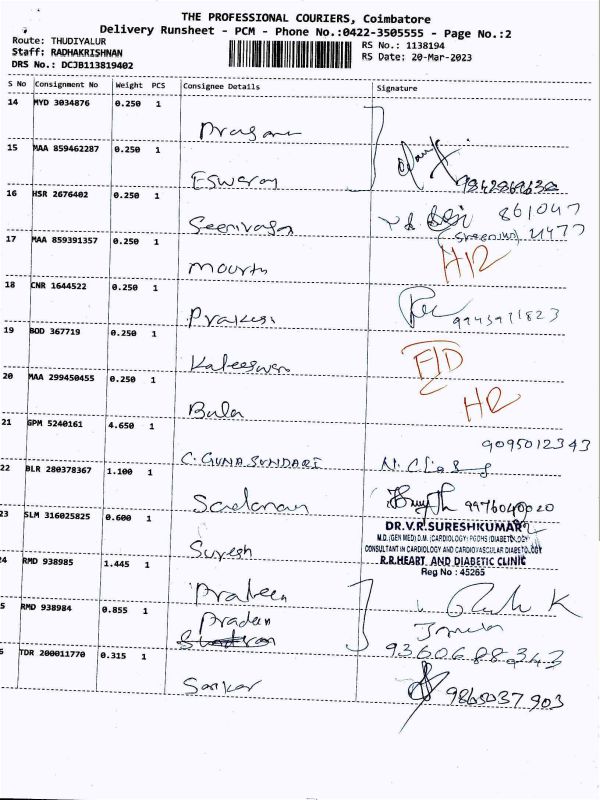 THE PROFESSIONAL COURIERS, Coimbatore
Delivery Runsheet - PCM - Phone No.:0422-3505555 - Page No.:2
Route: THUDIYALUR
Staff: RADHAKRISHNAN
DRS No.: DCJB113819402
RS No.: 1138194
RS Date: 20-Mar-2023
S No Consignment No Weight PCS Consignee Details Signature
14 MYD 3034876 0.250 1
15 MAA 859462287 0.250 1 Eswaran
16 HSR 2676402 0.250 1 Seenivasan
17 MAA 859391357 0.250 1
18 CNR 1644522 0.250 1
19 BOD 367719 0.250 1
20 MAA 299450455 0.250 1 Bala
21 GPM 5240161 4.650 1 C. GUNA SUNDARI
9095012343
22 BLR 280378367 1.100 1
23 SLM 316025825 0.600 1 Suresh
DR.V.R.SURESHKUMAR
M.D.(GEN MED) D.M.(CARDIOLOGY) PGDHS (DIABETOLOGY)
CONSULTANT IN CARDIOLOGY AND CARDIOVASCULAR DIABETOLOGY
R.R.HEART AND DIABETIC CLINIC
Reg No : 45265
RMD 938985 1.445 1
RMD 938984 0.855 1
9360688343
TDR 200011770 0.315 1 Sankar 9865037903